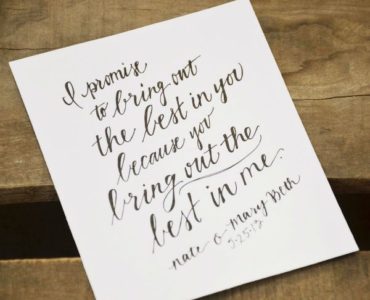 I promise
to bring out
the best in you
because you
bring out the
best in me.
nate & Mary Beth
3-25-13